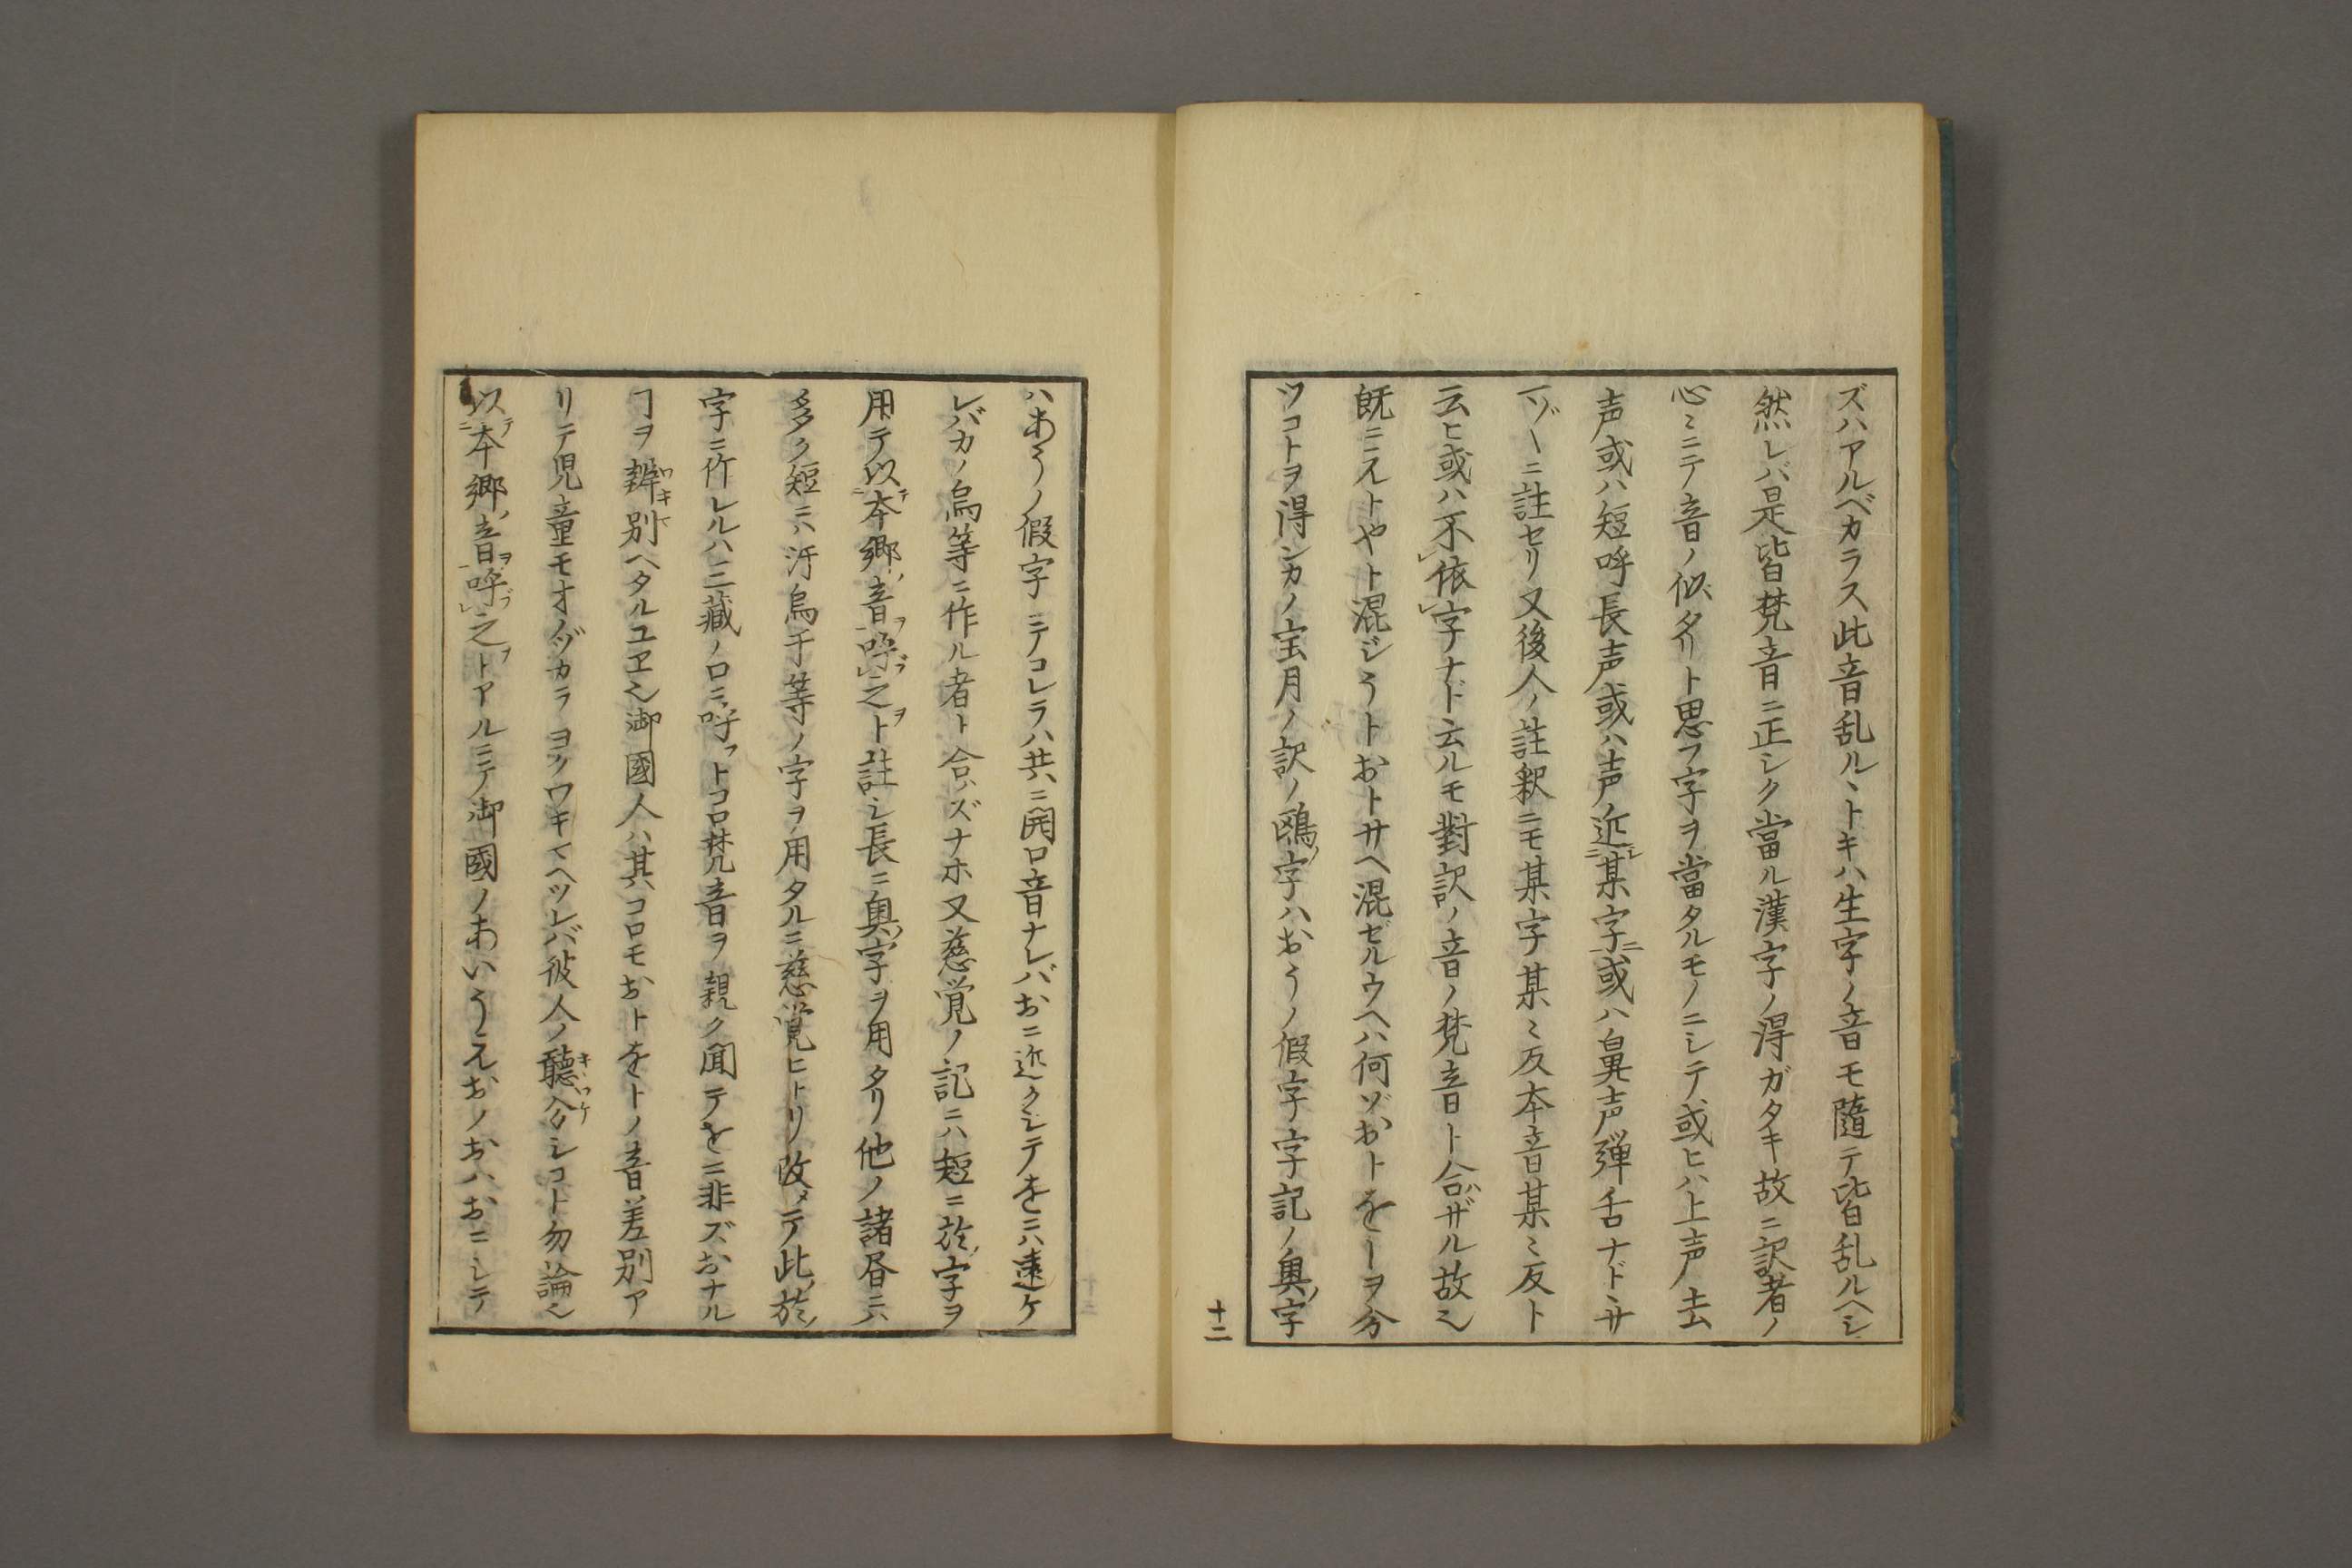 ズハアルベカラス此音乱ルヽトキハ生字ノ音モ隨テ皆乱ルヘシ
然レバ是皆梵音ニ正シク當ル漢字ノ得ガタキ故ニ訳者ノ
心〻ニテ音ノ似タリト思フ字ヲ當タルモノニシテ或ヒハ上声去
声或ハ短呼長声或ハ声近某字ニ或ハ鼻声弾舌ナドサ
〳〵ニ註セリ又後人ノ註釈ニモ某字某〻反本音某〻反ト
云ヒ或ハ不依字ナド云ルモ對訳ノ音ノ梵音ト合ハザル故也
既ニえトやト混ジうトおトサヘ混ゼルウヘハ何ゾおトをヿヲ分
ツコトヲ得シカノ宝月ノ訳ノ鴎字ハおうノ假字字記ノ奥字
ハあうノ假字ニテコレラハ共ニ開口音ナレバおニ近クシテをニハ遠ケ
レバカノ烏等ニ作ル者ト合ハズナホ又慈覚ノ記ニハ短ニ於字ヲ
用テ以テ本郷ノ音ヲ呼ブ之ヲト註シ長ニ奥字ヲ用タリ他ノ諸昼ニハ
多ク短ニハ汙烏于等ノ字ヲ用タルニ慈覚ヒトリ改メテ此ノ於ノ
字ニ作レルハ三藏ノ口ニ呼フトコロ梵音ヲ親ク聞テをニ非ズおナル
ヿヲ辨別ヘタルユヱ也御國人ハ其コロモおトをトノ音差別ア
リテ児童モオノヅカラヨクワキマヘツレバ彼人ノ聽分シコト勿論也
以テ本郷ノ音ヲ呼ブ之ヲトアルニテ御國ノあいうえおノおハおニシテ
十二